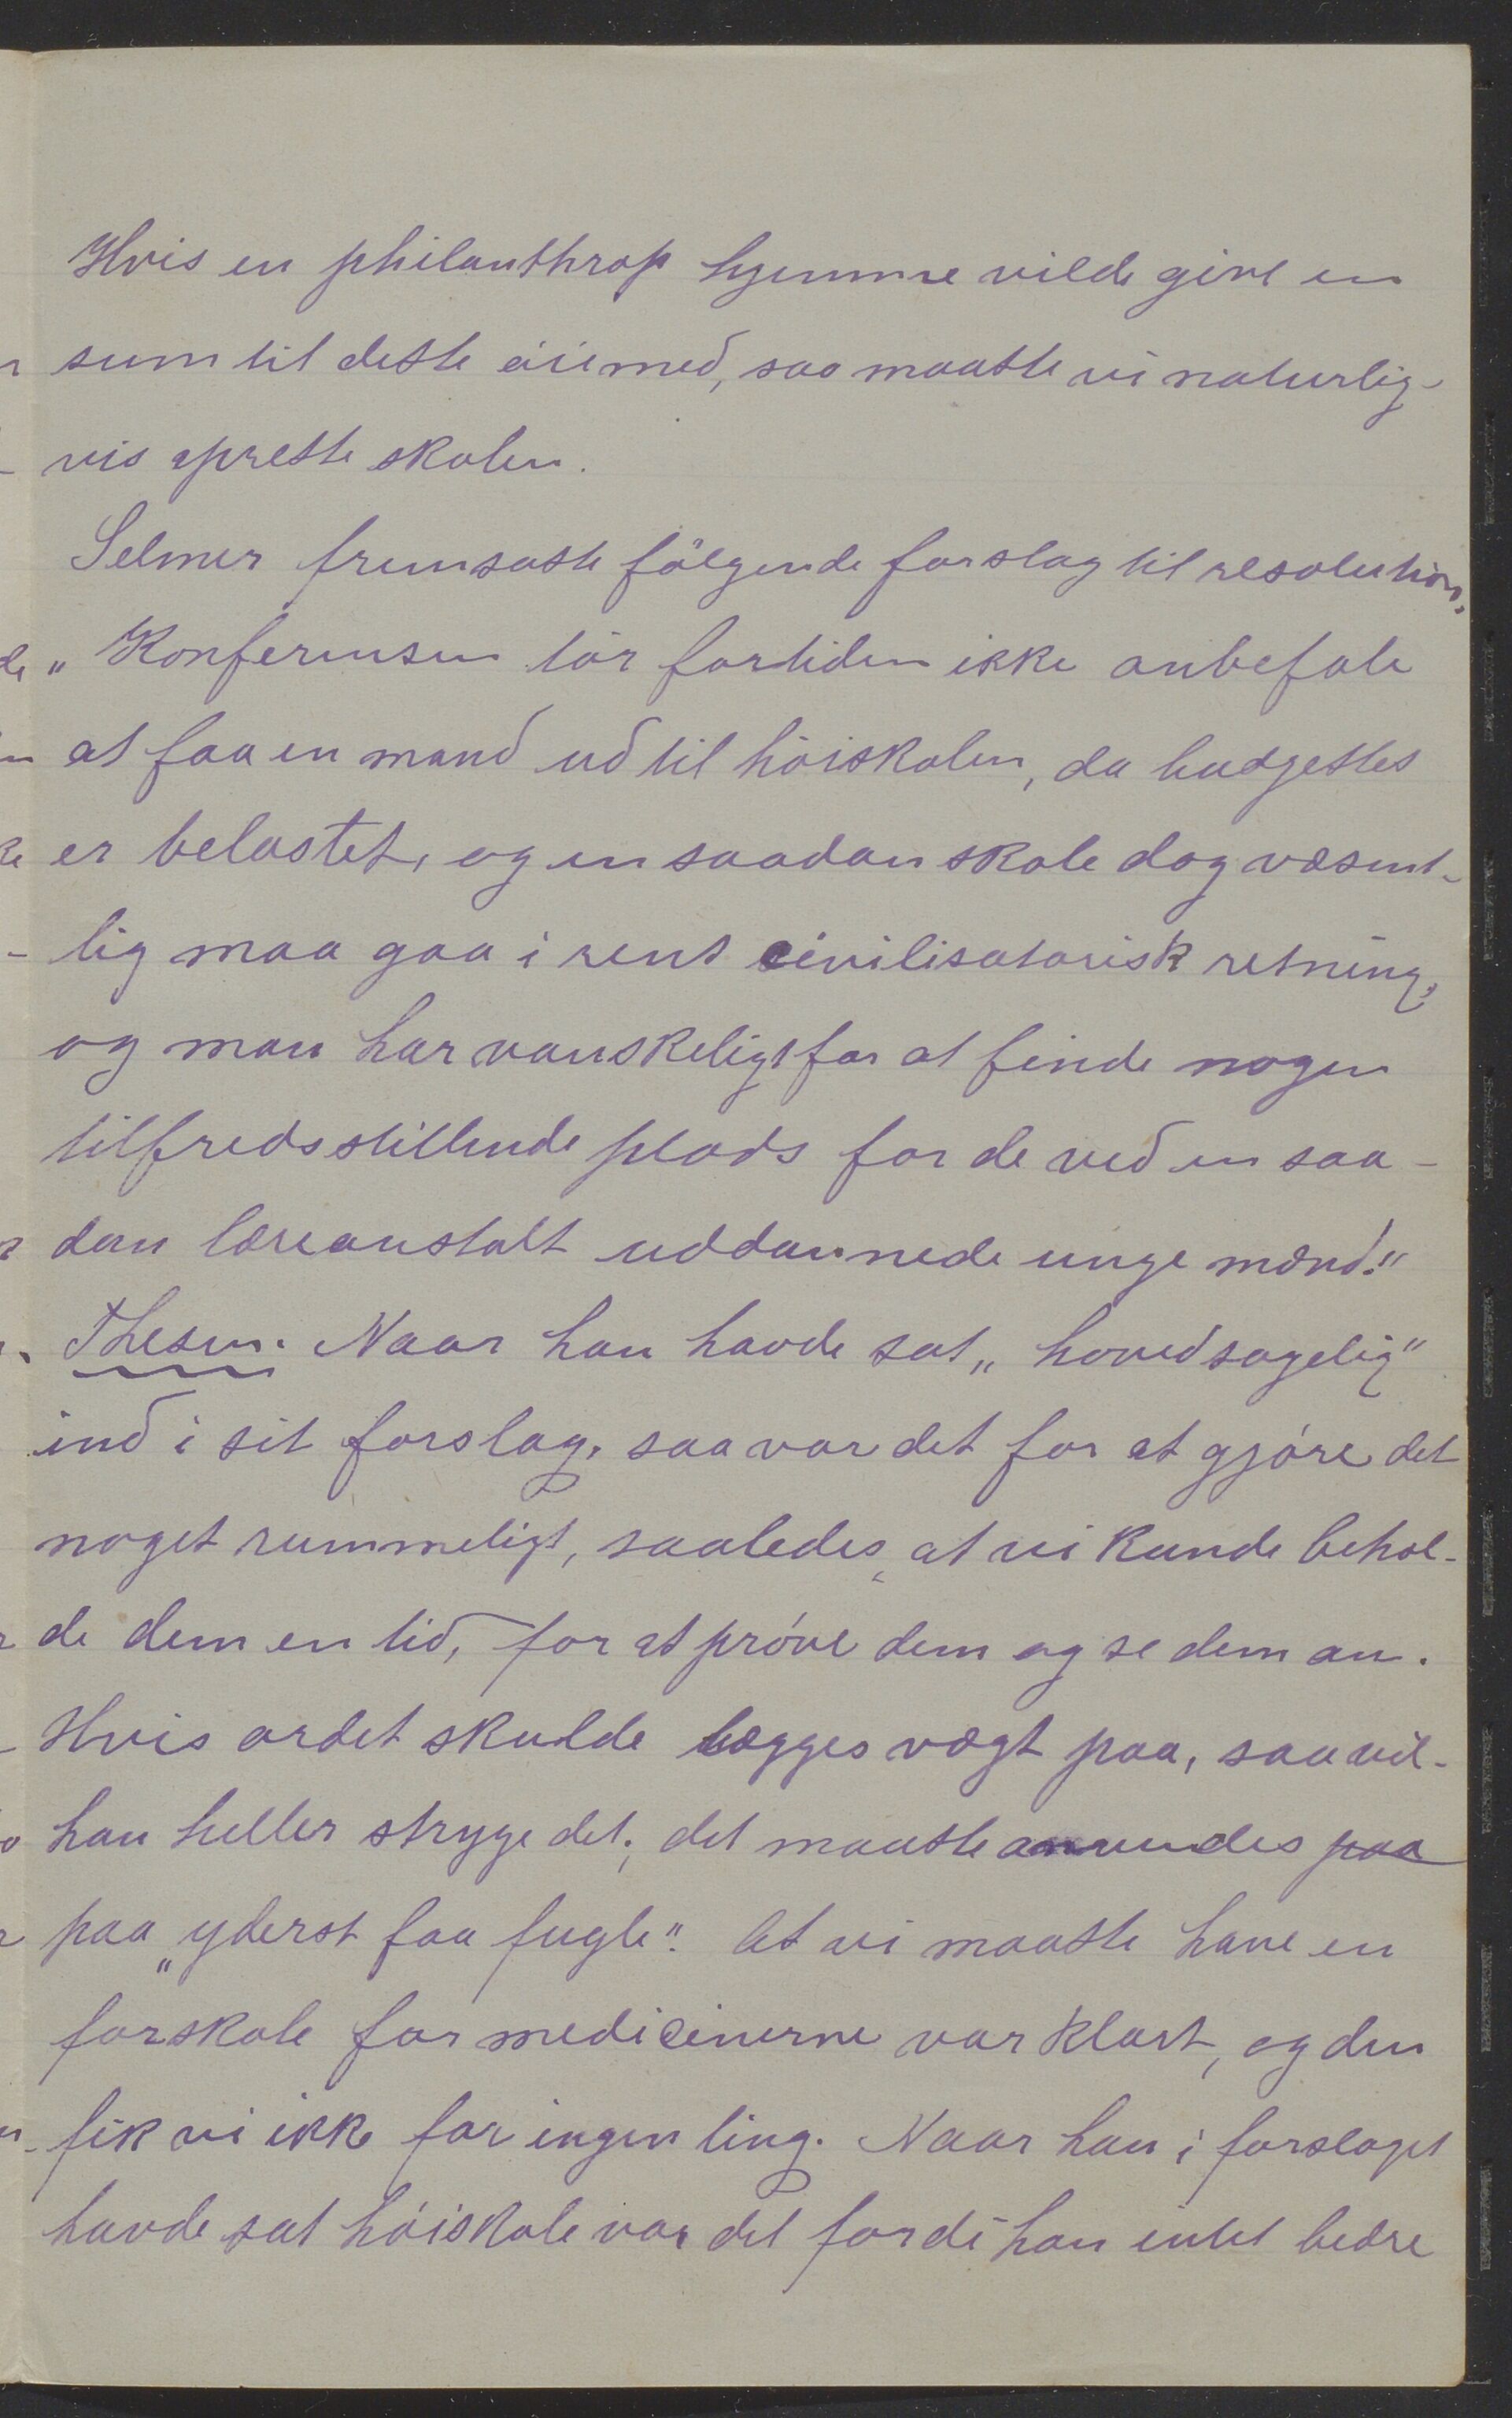 Hvis en philanthrop hjemme vilde give en
sum til dette öiemed, saa maatte vi naturlig-
vis oprette skolen.
Selmer fremsatte fölgende forslag til resolution,
„Konferensen tör fortiden ikke anbefale
at faa en mand ud til höiskolen, da budgettet
er belastet, og en saadan skole dog væsent-
lig maa gaa i rent civilisatorisk retning,
og man har vanskeligt for at finde nogen
tilfredsstillende plads for de ved en saa-
dan læreanstalt uddannede unge mænd."
Thesen. Naar han havde sat „hovedsagelig"
ind i sit forslag, saa var det for at gjöre det
noget rummeligt, saaledes, at vi kunde behol-
de dem en tid, for at pröve dem og se dem an.
Hvis ordet skulde lægges vægt paa, saa vil-
han heller stryge det; det maatte anvendes paa
paa „yderst faa fugle". At vi maatte have en
forskole for medicinerne var klart, og den
fik vi ikke for ingen ting. Naar han i forslaget
havde sat höiskole var det fordi han intet bedre